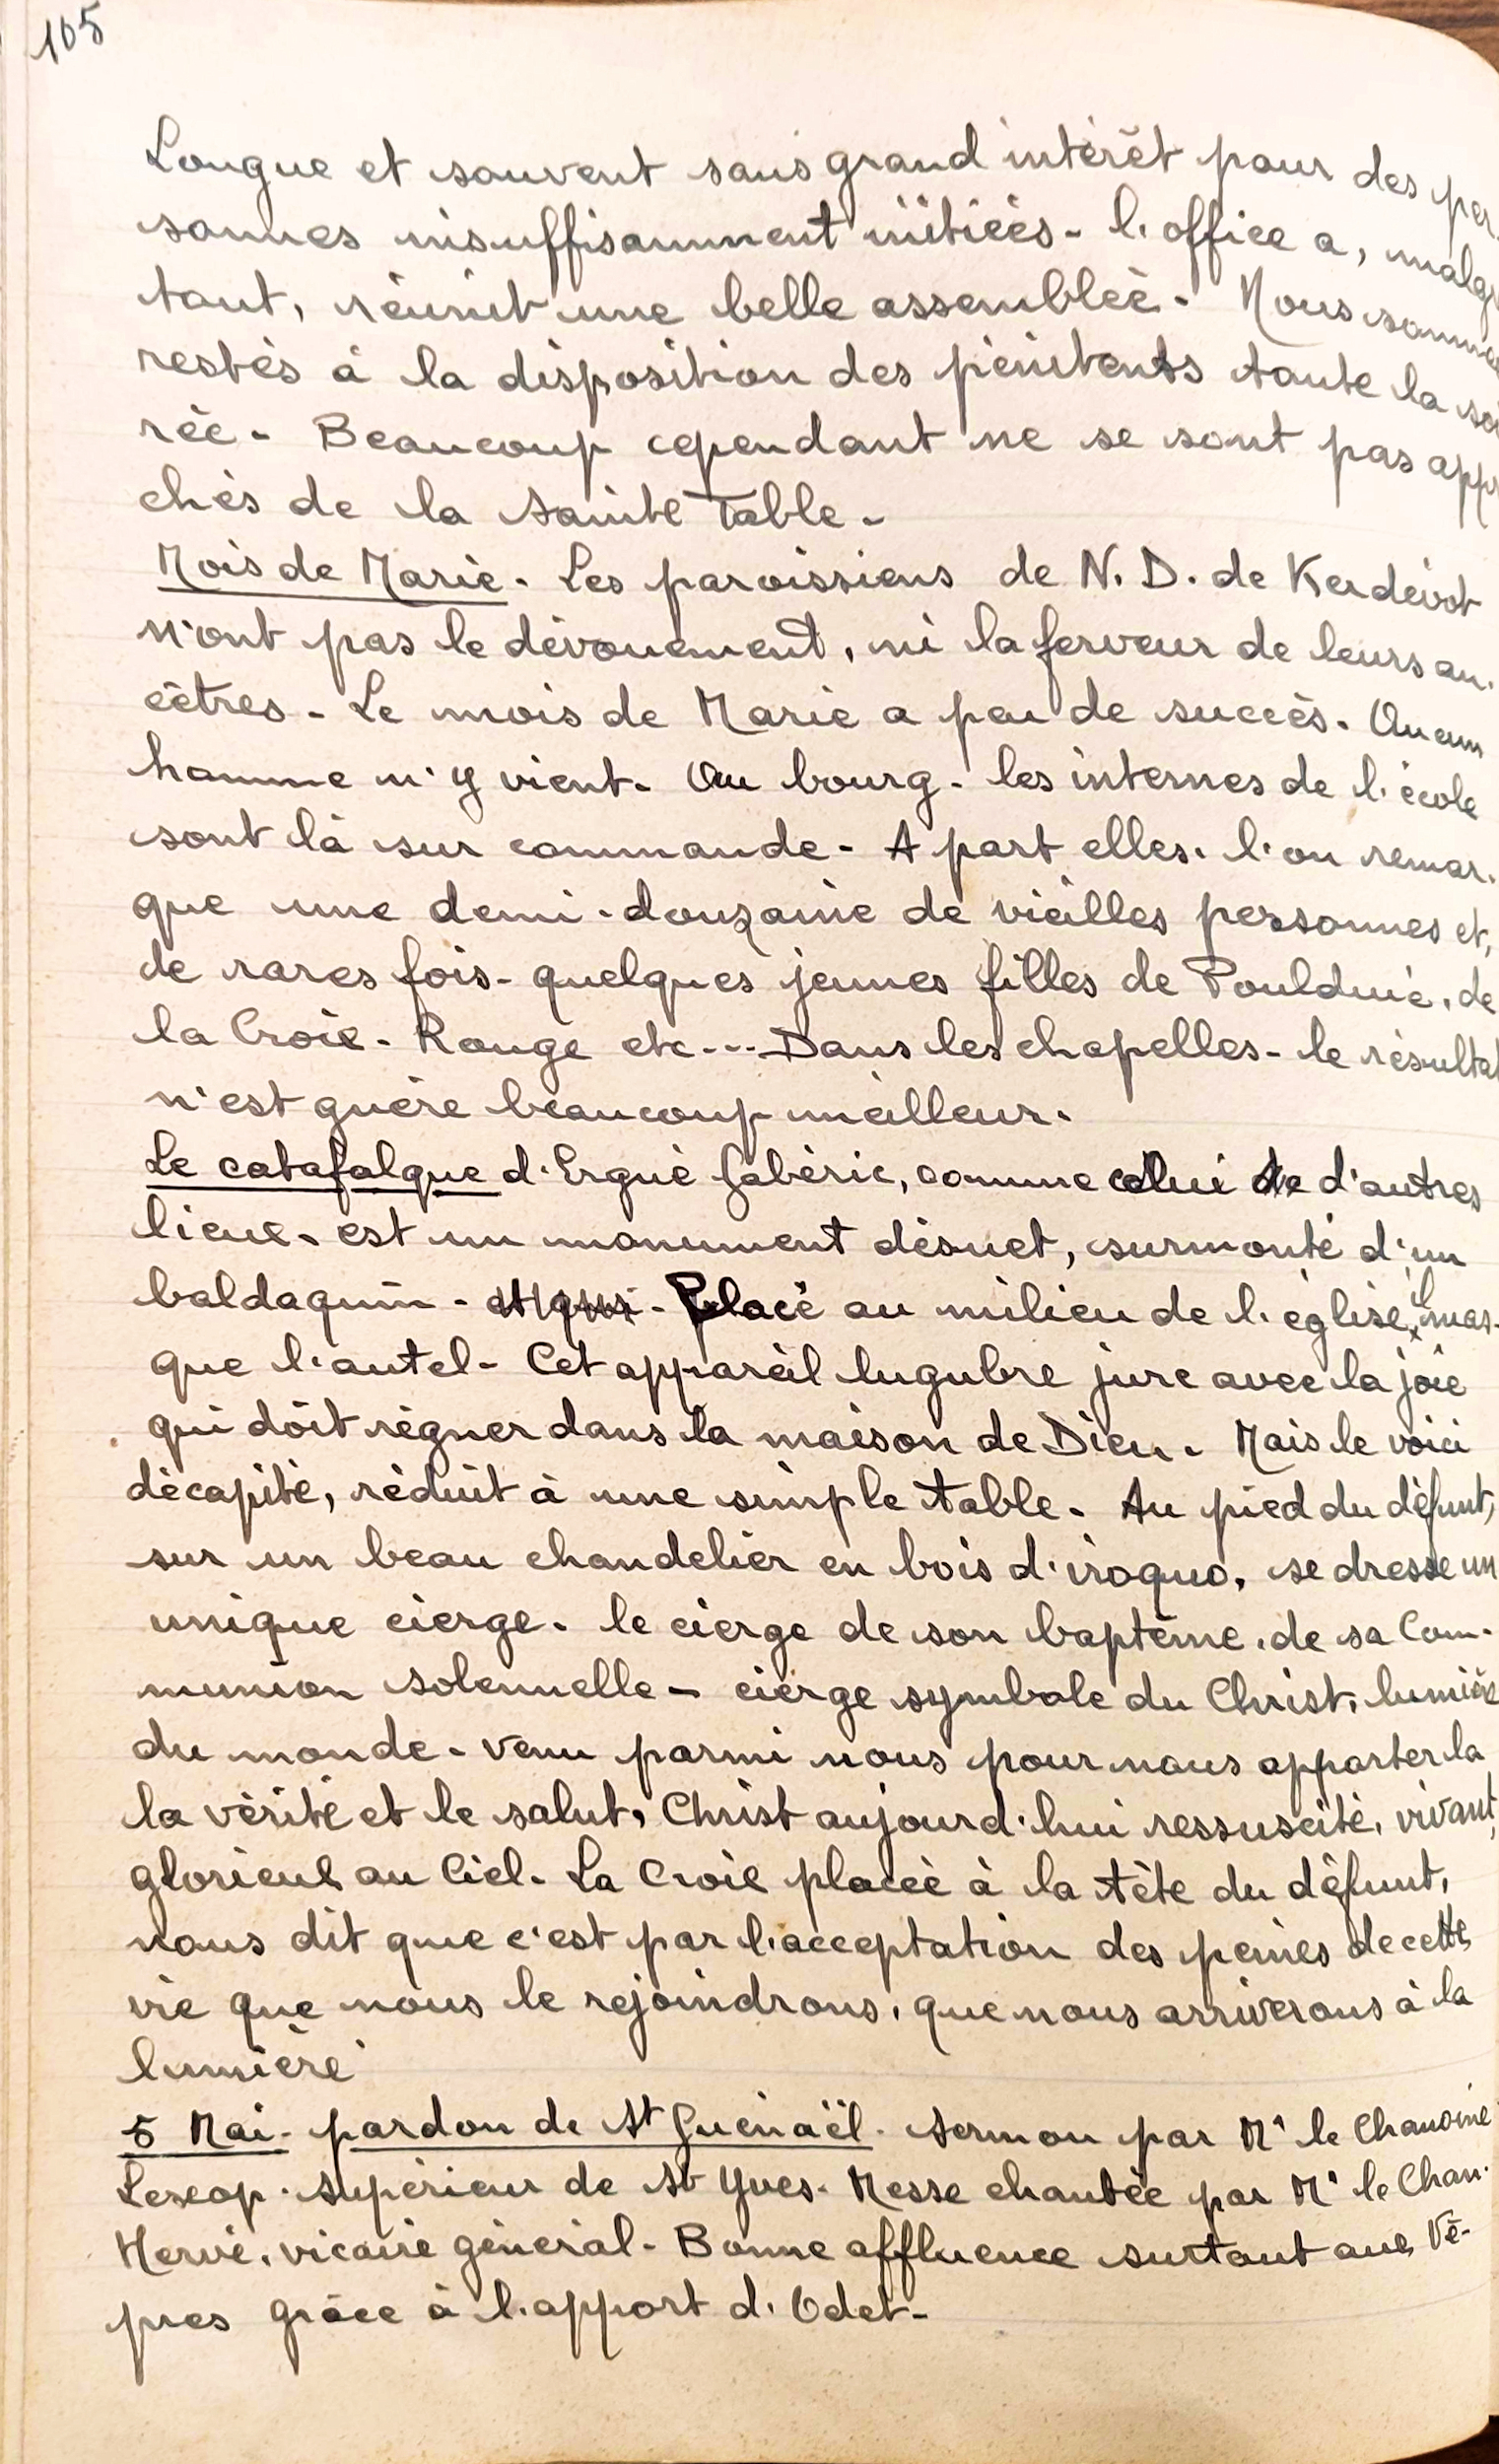 105
Longue et souvent sans grand intérêt pour des per-
sonnes insuffisamment initiées - l'office a, malgré
tout, réunit une belle assemblée. Nous sommes
restés à la disposition des pénitents toute la soi
rée - Beaucoup cependant ne se sont pas appr
chés de la Sainte Table -
Mois de Marie. Les paroissiens de N. D. de Kerdévot
n'ont pas le dévouement, ni la ferveur de leurs an-
cêtres - Le mois de Marie a peu de succès. Aucun
homme n'y vient. Au bourg - les internes de l'école
sont là sur commande - A part elles, l'on remar-
que une demi-douzaine de vieilles personnes et,
de rares fois - quelques jeunes filles de Poulduic, de
la Croix-Rouge etc... Dans les chapelles - le résultat
n'est guère beaucoup meilleur.
Le catafalque d'Ergué Gabéric, comme celui de d'autres
lieux, est un monument désuet, surmonté d'un
baldaquin - et qui - Placé au milieu de l'église, il mas-
que l'autel - Cet appareil lugubre jure avec la joie
qui doit régner dans la maison de Dieu. Mais le voici
décapité, réduit à une simple table. Au pied du défunt,
sur un beau chandelier en bois d'iroquo, se dresse un
unique cierge. le cierge de son baptême, de sa Com-
munion solennelle - cierge symbole du Christ, lumière
du monde - venu parmi nous pour nous apporter la
la vérité et le salut, Christ aujourd'hui ressuscité, vivant,
glorieux au Ciel. La Croix placée à la tête du défunt,
nous dit que c'est par l'acceptation des peines de cette
vie que nous le rejoindrons, que nous arriverons à la
lumière
5 Mai - pardon de St Guénaël - Sermon par Mr le Chanoine
Lescop - Supérieur de St Yves. Messe chantée par Mr le Chan.
Hervé, vicaire général - Bonne affluence surtout aux Vê-
pres grâce à l'apport d'Odet -